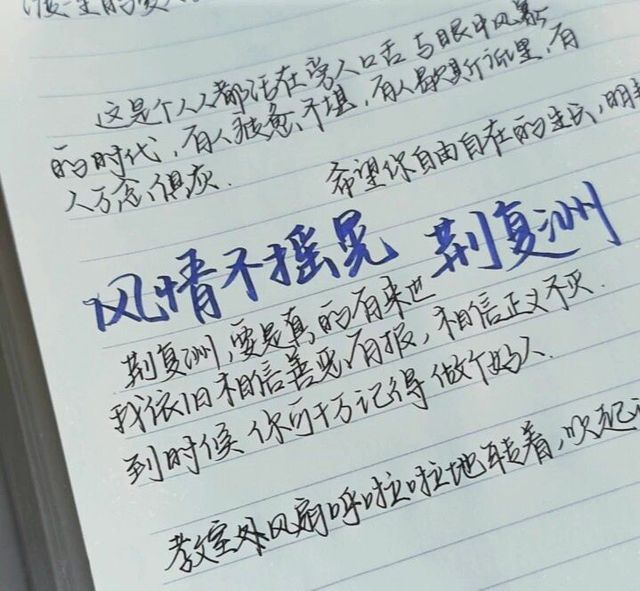 这是个人人都活在旁人口舌与眼中风暴
的时代，有人疲惫不堪，有人歇斯底里，有
人万念俱灰. 希望你自由自在的生长，明
风情不摇晃 荆复洲
荆复洲，要是真的有来世
我依旧相信善恶有报，相信正义不灭.
到时候你可千万记得做个好人.
教室外风扇呼啦啦地转着，吹起